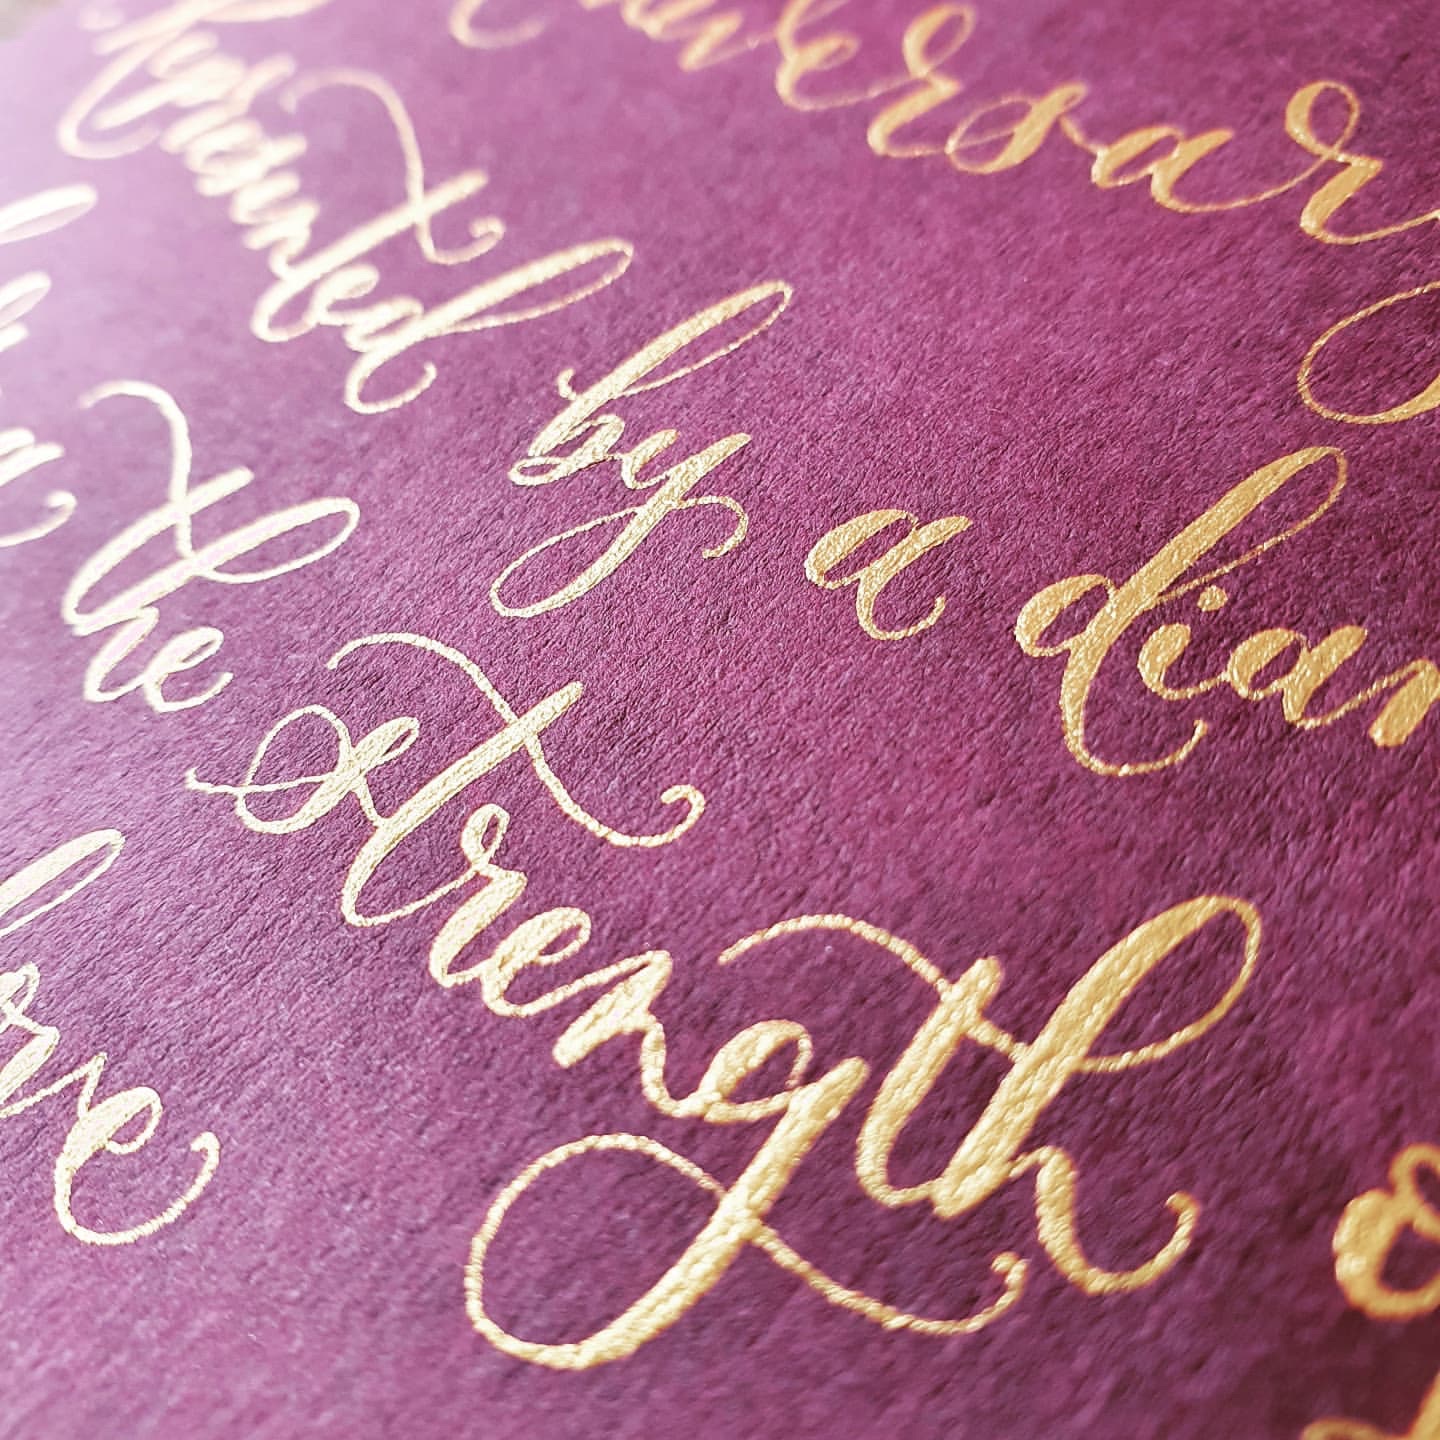 niversary
represented by a diam
the strength o
love